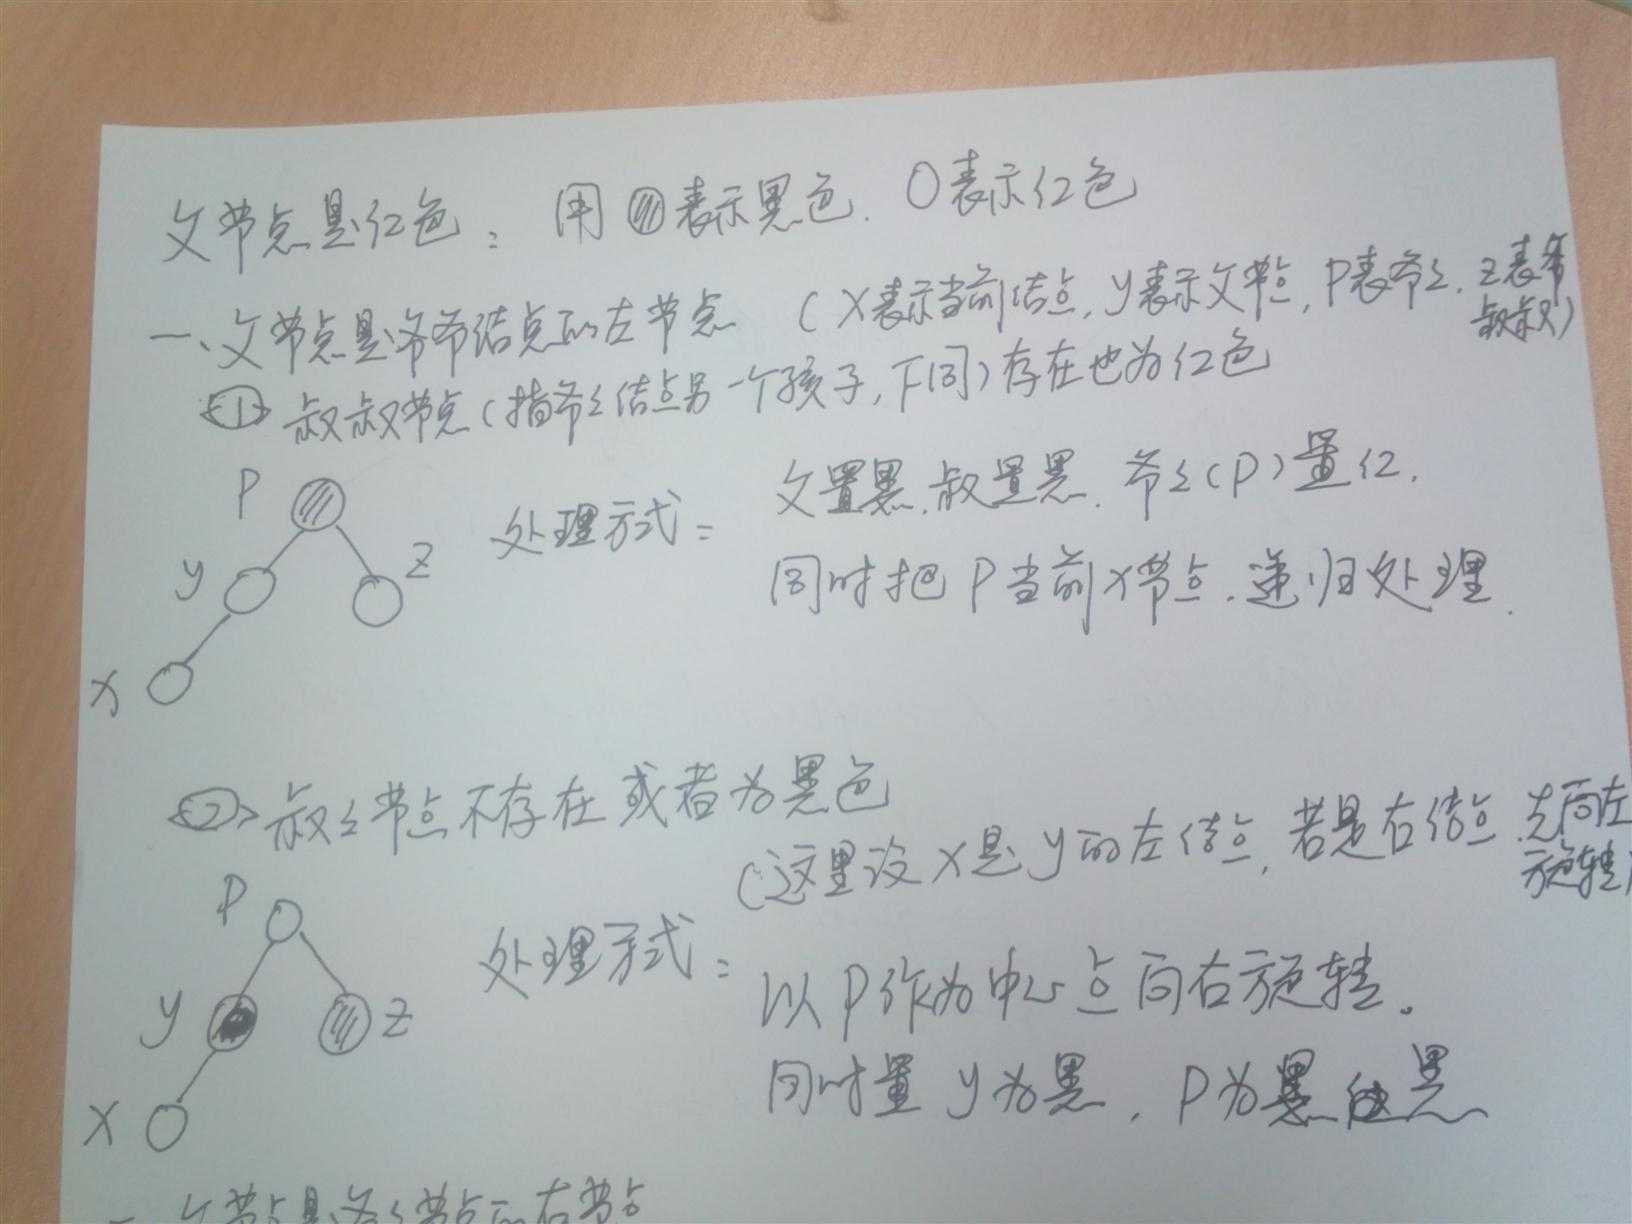 父节点是红色： 用 表示黑色. 表示红色
一、父节点是爷爷结点的左节点 (X表示当前结点, y表示父节点, P表爷々. z表希
叔叔)
① 叔叔节点(指爷々结点另一个孩子,下同)存在也为红色
P
y
z
X
处理方式：
父置黑.叔置黑. 爷々(P)置红.
同时把P当前X节点.递归处理.
② 叔々节点不存在或者为黑色
(这里设X是y的左结点, 若是右结点 先向左
旋转)
P
y
z
X
处理方式：
以P作为中心点向右旋转。
同时置y为黑, P为黑 黑
父节点是爷々节点的右节点